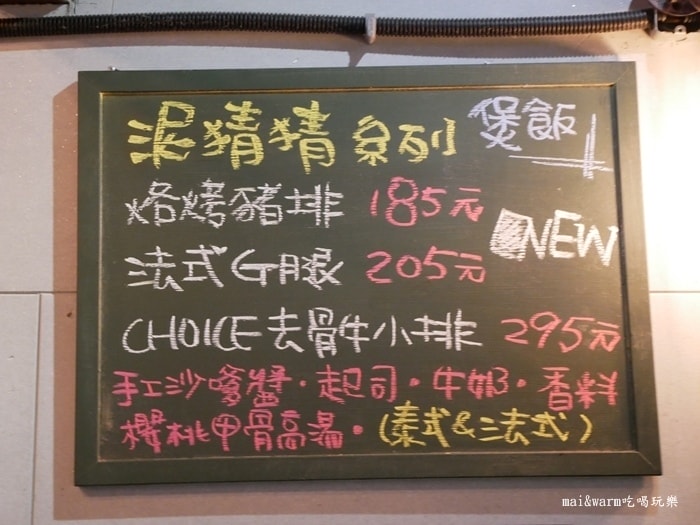 泥猜猜系列 煲飯
烙烤豬排 185元
NEW
法式G腿 205元
CHOICE去骨牛小排 295元
手工沙嗲醬·起司·牛奶·香料
櫻桃甲骨高湯·(泰式&法式)
mai&warm吃喝玩樂